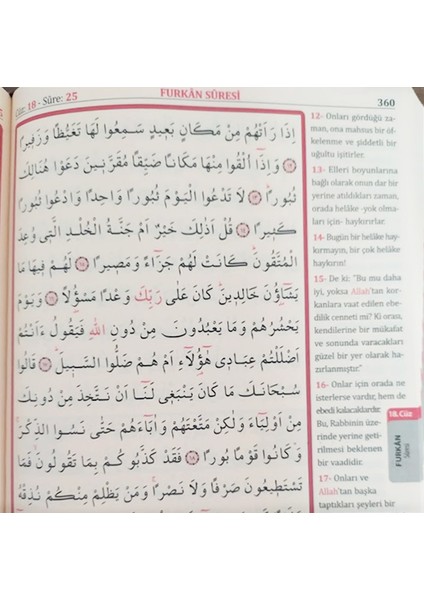 Cüz: 18 - Sûre: 25
FURKÂN SÛRESİ
360
اِذَا رَاَتْهُمْ مِنْ مَكَانٍ بَعٖيدٍ سَمِعُوا لَهَا تَغَيُّظًا وَزَفٖيرًا
﴿١٢﴾ وَاِذَٓا اُلْقُوا مِنْهَا مَكَانًا ضَيِّقًا مُقَرَّنٖينَ دَعَوْا هُنَالِكَ
ثُبُورًا ﴿١٣﴾ لَا تَدْعُوا الْيَوْمَ ثُبُورًا وَاحِدًا وَادْعُوا ثُبُورًا
كَثٖيرًا ﴿١٤﴾ قُلْ اَذٰلِكَ خَيْرٌ اَمْ جَنَّةُ الْخُلْدِ الَّتٖى وُعِدَ
الْمُتَّقُونَ كَانَتْ لَهُمْ جَزَٓاءً وَمَصٖيرًا ﴿١٥﴾ لَهُمْ فٖيهَا مَا
يَشَٓاؤُنَ خَالِدٖينَ كَانَ عَلٰى رَبِّكَ وَعْدًا مَسْؤُلًا ﴿١٦﴾ وَيَوْمَ
يَحْشُرُهُمْ وَمَا يَعْبُدُونَ مِنْ دُونِ اللّٰهِ فَيَقُولُ ءَاَنْتُمْ
اَضْلَلْتُمْ عِبَادٖى هٰٓؤُلَٓاءِ اَمْ هُمْ ضَلُّوا السَّبٖيلَ ﴿١٧﴾ قَالُوا
سُبْحَانَكَ مَا كَانَ يَنْبَغٖى لَنَٓا اَنْ نَتَّخِذَ مِنْ دُونِكَ
مِنْ اَوْلِيَٓاءَ وَلٰكِنْ مَتَّعْتَهُمْ وَاٰبَٓاءَهُمْ حَتّٰى نَسُوا الذِّكْرَ
وَكَانُوا قَوْمًا بُورًا ﴿١٨﴾ فَقَدْ كَذَّبُوكُمْ بِمَا تَقُولُونَ فَمَا
تَسْتَطٖيعُونَ صَرْفًا وَلَا نَصْرًا وَمَنْ يَظْلِمْ مِنْكُمْ نُذِقْهُ
12- Onları gördüğü za-
man, ona mahsus bir öf-
kelenme ve şiddetli bir
uğultu işitirler.
13- Elleri boyunlarına
bağlı olarak onun dar bir
yerine atıldıkları zaman,
orada helâke -yok olma-
ları için- haykırırlar.
14- Bugün bir helâke hay-
kırmayın, bir çok helâke
haykırın!
15- De ki: "Bu mu daha
iyi, yoksa Allah'tan kor-
kanlara vaat edilen ebe-
dilik cenneti mi? Ki orası,
kendilerine bir mükafat
ve sonunda varacakları
güzel bir yer olarak ha-
zırlanmıştır."
16- Onlar için orada ne
isterlerse vardır, hem de
ebedi kalacaklardır.
Bu, Rabbinin üze-
rinde yerine geti-
rilmesi beklenen
bir vaadidir.
17- Onları ve
Allah'tan başka
taptıkları şeyleri bir
18.Cüz
FURKÂN
Sûresi